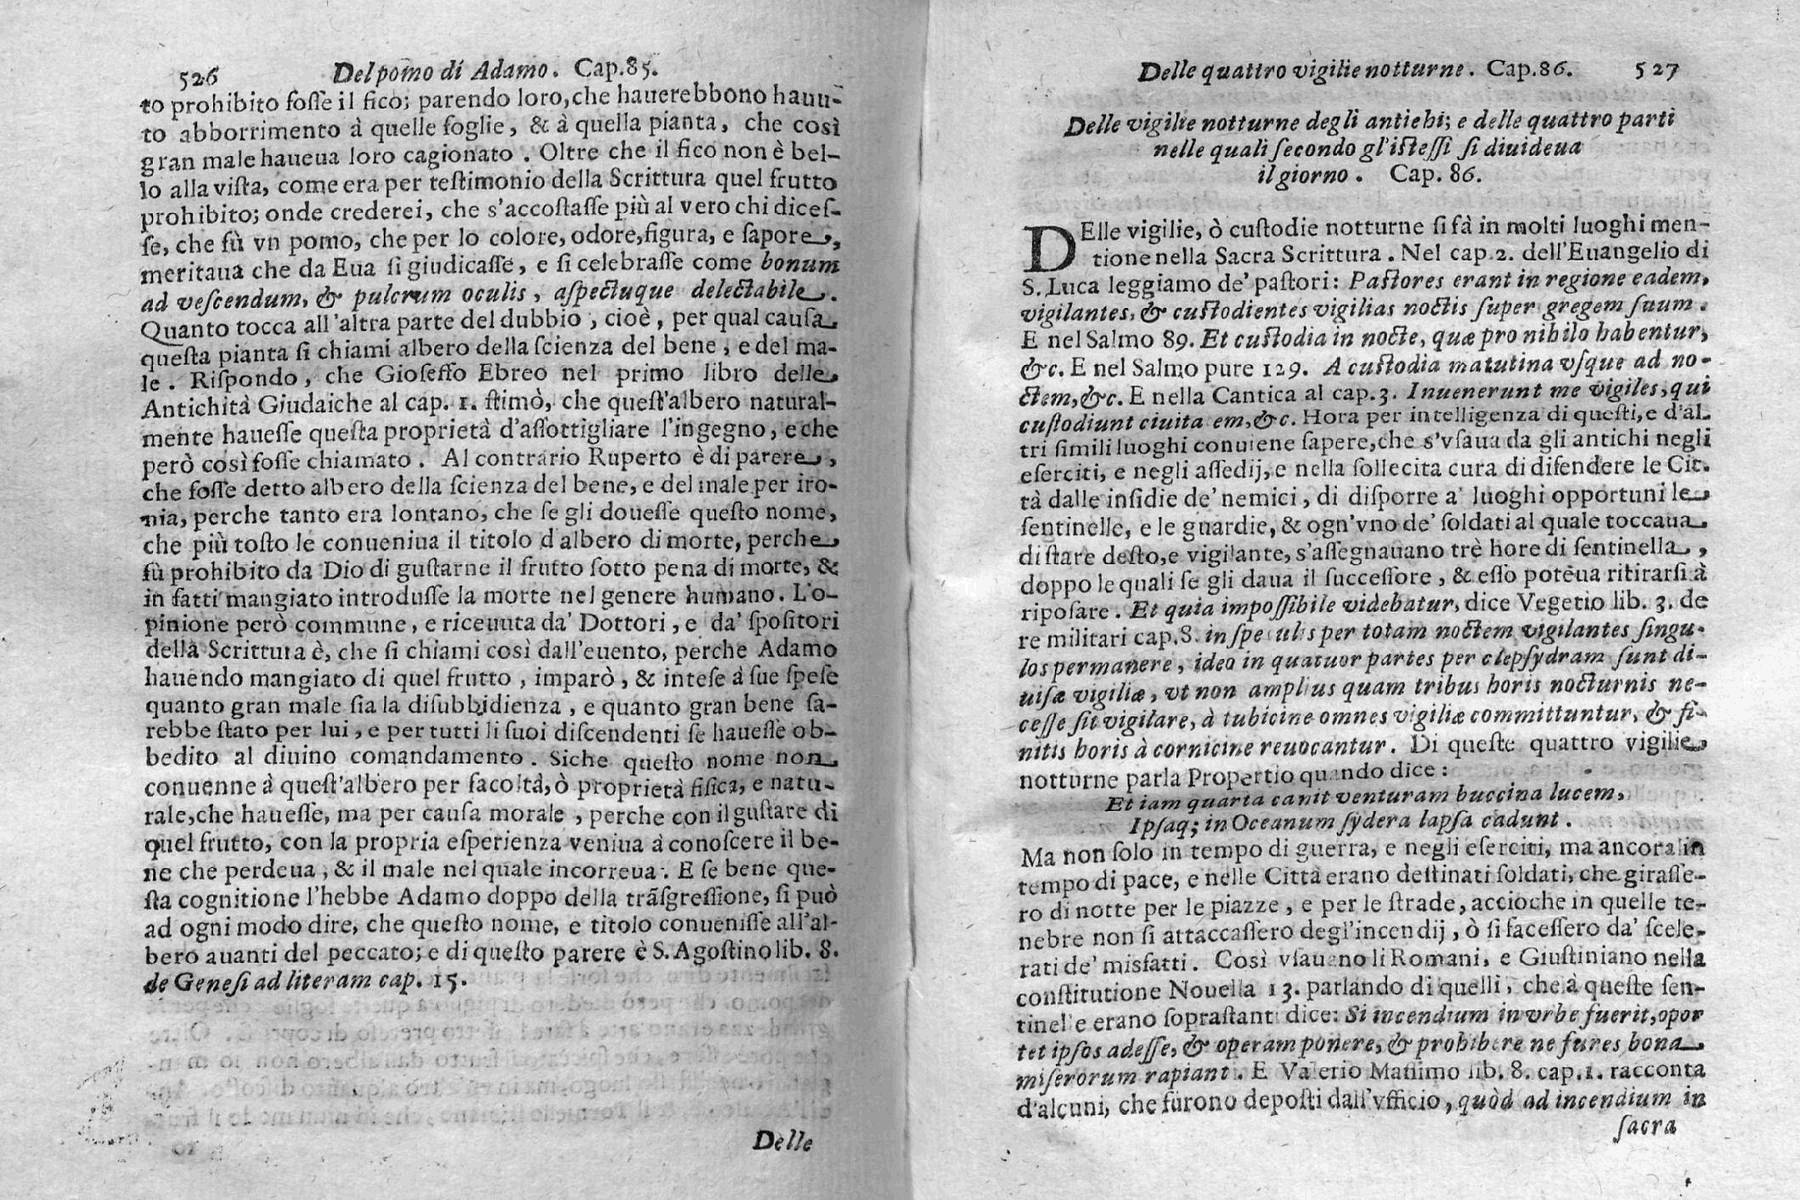 526 Del pomo di Adamo. Cap. 85.
to prohibito fosse il fico; parendo loro, che hauerebbono hauu-
to abborrimento à quelle foglie, & à quella pianta, che così
gran male haueua loro cagionato. Oltre che il fico non è bel-
lo alla vista, come era per testimonio della Scrittura quel frutto
prohibito; onde crederei, che s'accostasse più al vero chi dices-
se, che fù vn pomo, che per lo colore, odore, figura, e sapore,
meritaua che da Eua si giudicasse, e si celebrasse come bonum
ad vescendum, & pulcrum oculis, aspectuque delectabile.
Quanto tocca all'altra parte del dubbio, cioè, per qual causa
questa pianta si chiami albero della scienza del bene, e del ma-
le. Rispondo, che Gioseffo Ebreo nel primo libro delle
Antichità Giudaiche al cap. 1. stimò, che quest'albero natural-
mente hauesse questa proprietà d'assottigliare l'ingegno, e che
però così fosse chiamato. Al contrario Ruperto è di parere,
che fosse detto albero della scienza del bene, e del male per iro-
nia, perche tanto era lontano, che se gli douesse questo nome,
che più tosto le conueniua il titolo d'albero di morte, perche
fù prohibito da Dio di gustarne il frutto sotto pena di morte, &
in fatti mangiato introdusse la morte nel genere humano. L'o-
pinione però commune, e riceuuta da' Dottori, e da' spositori
della Scrittura è, che si chiami così dall'euento, perche Adamo
hauendo mangiato di quel frutto, imparò, & intese à sue spese
quanto gran male sia la disubbidienza, e quanto gran bene sa-
rebbe stato per lui, e per tutti li suoi discendenti se hauesse ob-
bedito al diuino comandamento. Siche questo nome non
conuenne à quest'albero per facoltà, ò proprietà fisica, e natu-
rale, che hauesse, ma per causa morale, perche con il gustare di
quel frutto, con la propria esperienza veniua à conoscere il be-
ne che perdeua, & il male nel quale incorreua. E se bene que-
sta cognitione l'hebbe Adamo doppo della trãsgressione, si può
ad ogni modo dire, che questo nome, e titolo conuenisse all'al-
bero auanti del peccato; e di questo parere è S. Agostino lib. 8.
de Genesi ad literam cap. 15.
Delle
Delle quattro vigilie notturne. Cap. 86. 527
Delle vigilie notturne degli antichi; e delle quattro parti
nelle quali secondo gl'istessi si diuideua
il giorno. Cap. 86.
DElle vigilie, ò custodie notturne si fà in molti luoghi men-
tione nella Sacra Scrittura. Nel cap. 2. dell'Euangelio di
S. Luca leggiamo de' pastori: Pastores erant in regione eadem,
vigilantes, & custodientes vigilias noctis super gregem suum.
E nel Salmo 89. Et custodia in nocte, quæ pro nihilo habentur,
&c. E nel Salmo pure 129. A custodia matutina vsque ad no-
ctem, &c. E nella Cantica al cap. 3. Inuenerunt me vigiles, qui
custodiunt ciuita em, &c. Hora per intelligenza di questi, e d'al-
tri simili luoghi conuiene sapere, che s'vsaua da gli antichi negli
eserciti, e negli assedij, e nella sollecita cura di difendere le Cit-
tà dalle insidie de' nemici, di disporre a' luoghi opportuni le
sentinelle, e le guardie, & ogn'vno de' soldati al quale toccaua
di stare desto, e vigilante, s'assegnauano trè hore di sentinella,
doppo le quali se gli daua il successore, & esso poteua ritirarsi à
riposare. Et quia impossibile videbatur, dice Vegetio lib. 3. de
re militari cap. 8. in spe ulis per totam noctem vigilantes singu-
los permanere, ideo in quatuor partes per clepsydram sunt di-
uisæ vigiliæ, vt non amplius quam tribus horis nocturnis ne-
cesse sit vigilare, à tubicine omnes vigiliæ committuntur, & fi-
nitis horis à cornicine reuocantur. Di queste quattro vigilie
notturne parla Propertio quando dice:
Et iam quarta canit venturam buccina lucem,
Ipsaq; in Oceanum sydera lapsa cadunt.
Ma non solo in tempo di guerra, e negli eserciti, ma ancora in
tempo di pace, e nelle Città erano destinati soldati, che girasse-
ro di notte per le piazze, e per le strade, accioche in quelle te-
nebre non si attaccassero degl'incendij, ò si facessero da' scele-
rati de' misfatti. Così vsauano li Romani, e Giustiniano nella
constitutione Nouella 13. parlando di quelli, che à queste sen-
tinelle erano soprastanti dice: Si incendium in vrbe fuerit, opor
tet ipsos adesse, & operam ponere, & prohibere ne fures bona
miserorum rapiant. E Valerio Massimo lib. 8. cap. 1. racconta
d'alcuni, che furono deposti dall'vfficio, quòd ad incendium in
sacra